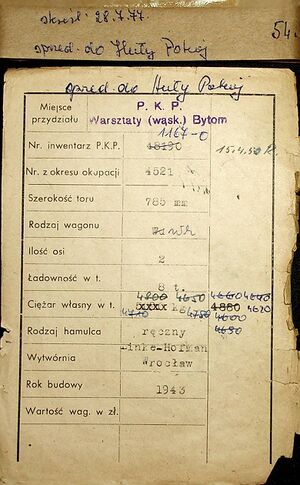 skreśl. 28.7.77.
54.
spred. do Huty Pokój
spred. do Huty Pokój
Miejsce przydziału P. K. P.
Warsztaty (wąsk.) Bytom
1167-0
Nr. inwentarz P.K.P. 48190 15.4.50 R.
Nr. z okresu okupacji 4521
Szerokość toru 785 mm
Rodzaj wagonu
Ilość osi 2
Ładowność w t. 8 t.
4800 4650 4660 4640
Ciężar własny w t. xxxx kg 4880 4620
4710 4750 4600
Rodzaj hamulca ręczny 4690
Wytwórnia Linke-Hofman
Wrocław
Rok budowy 1943
Wartość wag. w zł.